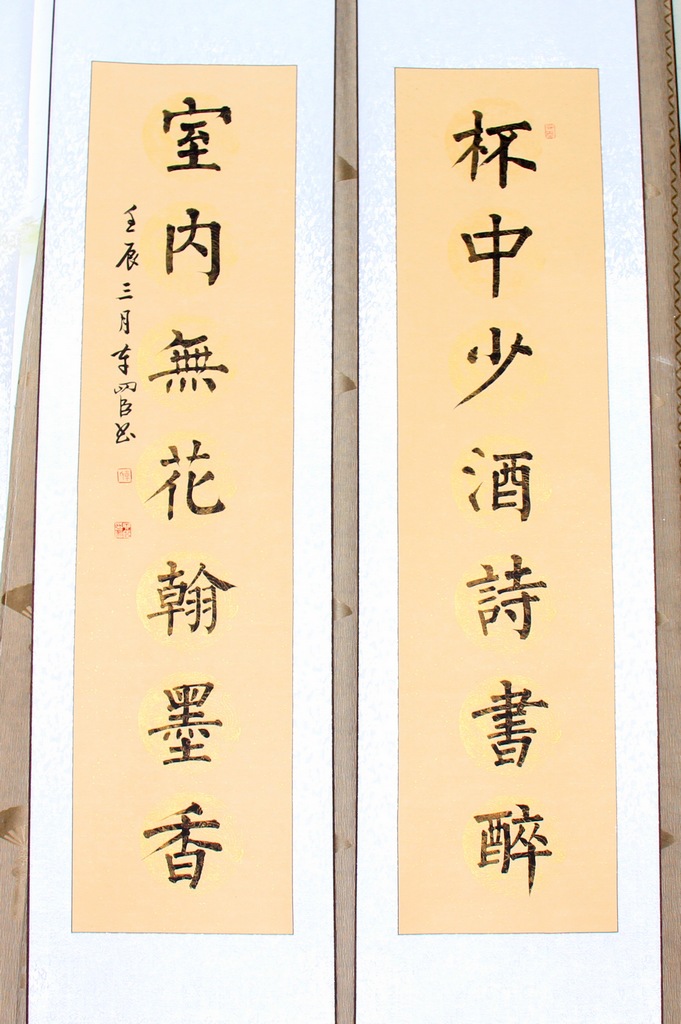 杯中少酒詩書醉
室内無花翰墨香
壬辰三月